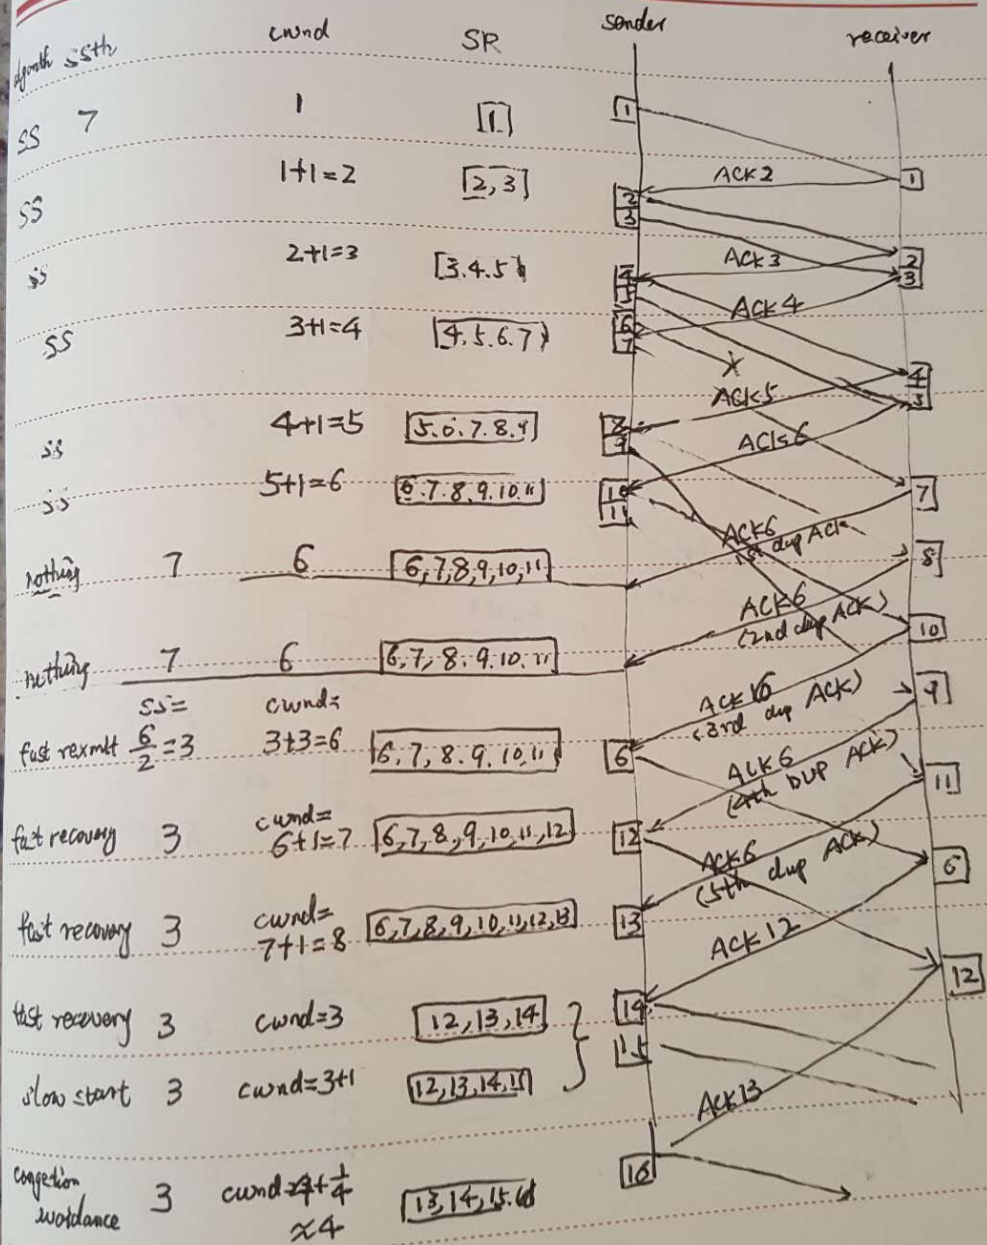 algorith ssth cwnd SR sender receiver
SS 7 1 [1] 1
1
ACK2
SS 1+1=2 [2,3] 2
3
ACK3
2
3
SS 2+1=3 [3.4.5] 4
5
ACK4
SS 3+1=4 [4.5.6.7] 6
7
X
4
5
ACK5
SS 4+1=5 5.6.7.8.9 8
9
ACK6
SS 5+1=6 6.7.8.9.10.11 10
11
7
ACK6
1st dup ACK
nothing 7 6 6,7,8,9,10,11
8
ACK6
(2nd dup ACK)
10
nothing 7 6 6,7,8.9.10.11
ss= cwnd=
ACK6
(3rd dup ACK)
9
fast rexmlt 6/2=3 3+3=6 6,7,8.9.10.11 6
ACK6
(4th DUP ACK)
11
fast recovery 3 cwnd=
6+1=7 6,7,8,9,10,11,12 12
ACK6
(5th dup ACK)
6
fast recovery 3 cwnd=
7+1=8 6,7,8,9,10,11,12,13 13
ACK12
12
fast recovery 3 cwnd=3 12,13,14 14
15
slow start 3 cwnd=3+1 12,13,14,15
ACK13
congestion
avoidance 3 cwnd=4+1/4
≈4 13,14,15.16 16